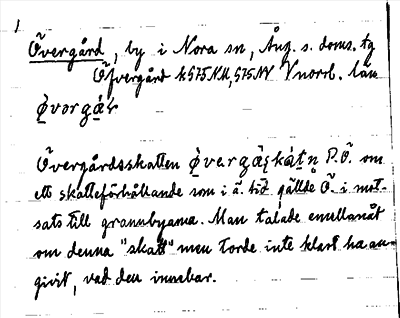 1
Övergård, by i Nora sn, Ång. s. doms. tg
Öfvergård k 575 NU, 575 NV Vnorrl. län
Övergårdsskatten P.Ö. om
ett skatteförhållande som i ä. tid gällde Ö. i mot-
sats till grannbyarna. Man talade emellanåt
om denna "skatt" men torde inte klart ha an-
givit, vad den innebar.